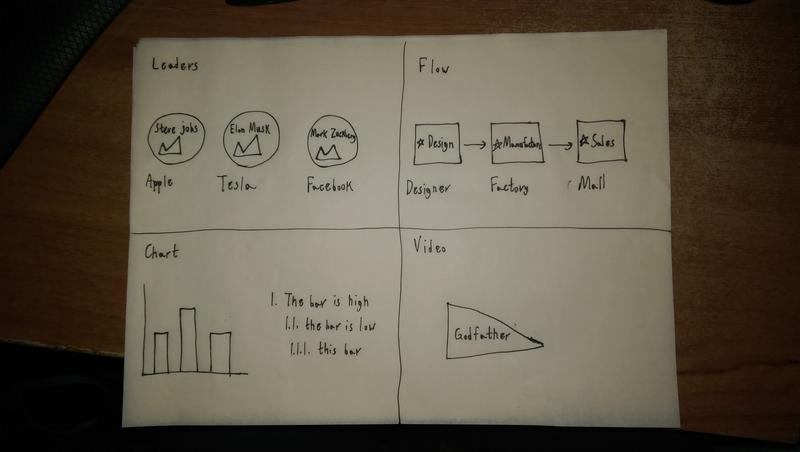 Leaders
Steve jobs
Elon Musk
Mark Zuckberg
Apple
Tesla
Facebook
Flow
Design
Manufacture
Sales
Designer
Factory
Mall
Chart
1. The bar is high
1.1. the bar is low
1.1.1. this bar
Video
Godfather